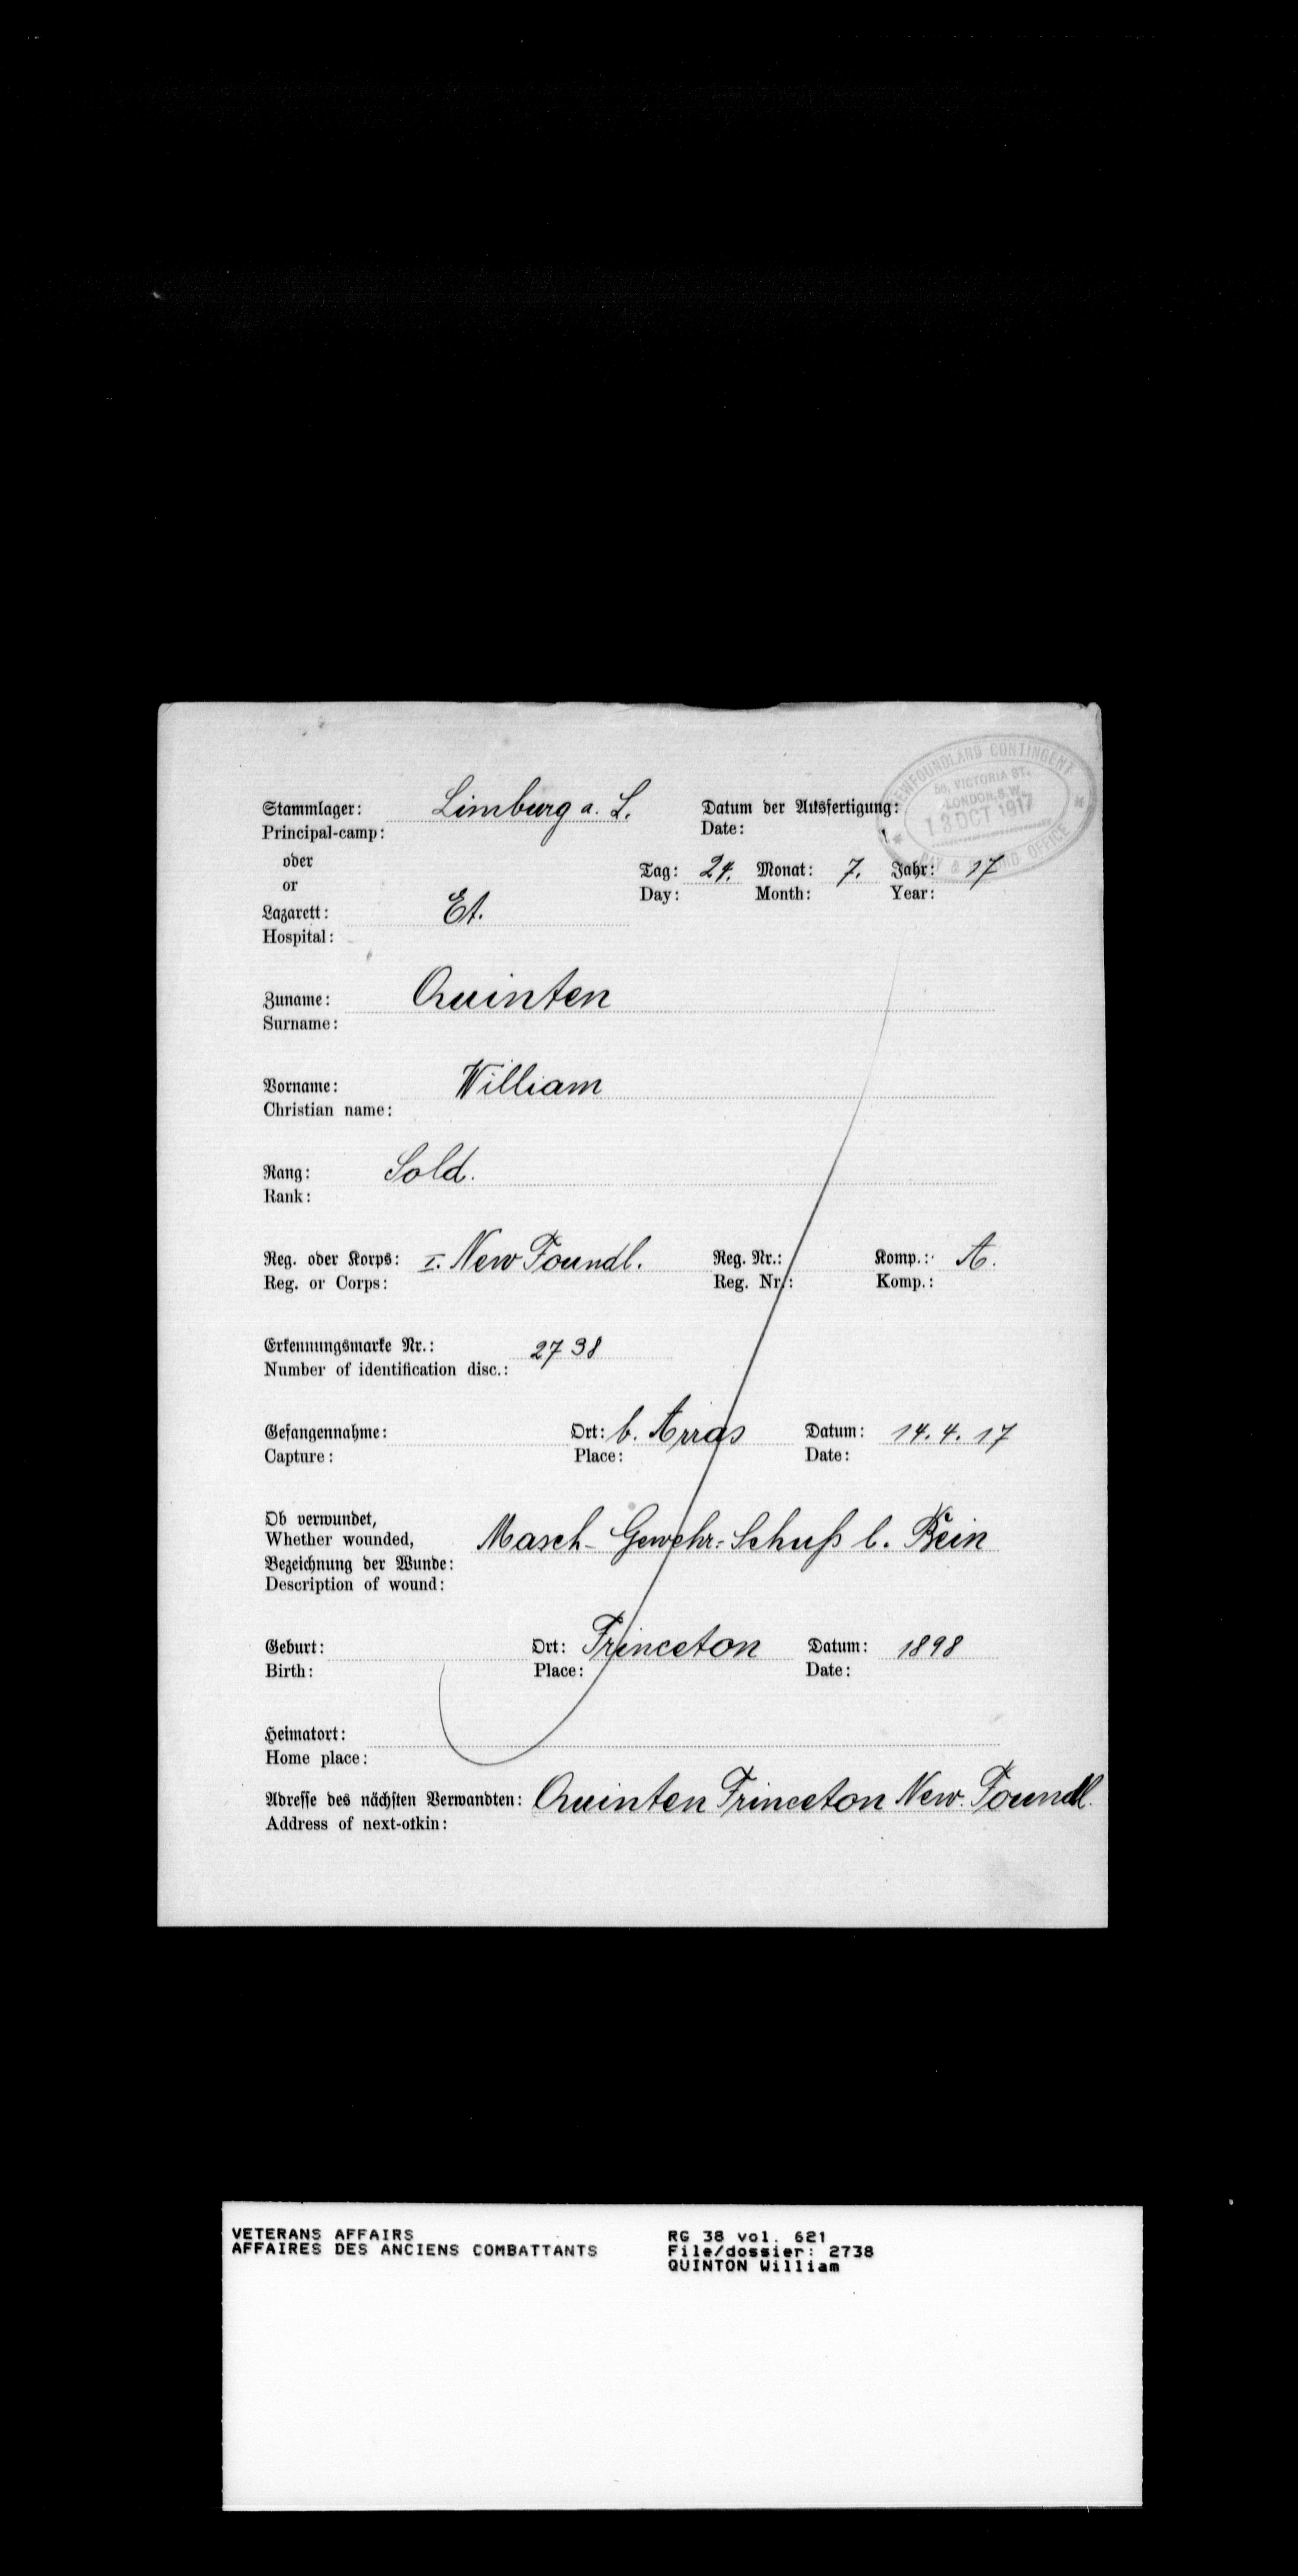 NEWFOUNDLAND CONTINGENT
58, VICTORIA ST.
LONDON, S.W.
13 OCT 1917
PAY & RECORD OFFICE
Stammlager: Limburg a. L. Datum der Ausfertigung:
Principal-camp: Date:
oder
or
Tag: 24. Monat: 7. Jahr: 17
Day: Month: Year:
Lazarett: Et.
Hospital:
Zuname: Quinten
Surname:
Vorname: William
Christian name:
Rang: Sold.
Rank:
Reg. oder Korps: I. New Foundl. Reg. Nr.: Komp.: A.
Reg. or Corps: Reg. Nr.: Komp.:
Erkennungsmarke Nr.: 2738
Number of identification disc.:
Gefangennahme: Ort: b. Arras Datum: 14.4.17
Capture: Place: Date:
Ob verwundet,
Whether wounded, Masch-Gewehr-Schuß l. Bein
Bezeichnung der Wunde:
Description of wound:
Geburt: Ort: Princeton Datum: 1898
Birth: Place: Date:
Heimatort:
Home place:
Adresse des nächsten Verwandten: Quinten Princeton New. Foundl.
Address of next-otkin:
VETERANS AFFAIRS RG 38 vol. 621
AFFAIRES DES ANCIENS COMBATTANTS File/dossier: 2738
QUINTON William